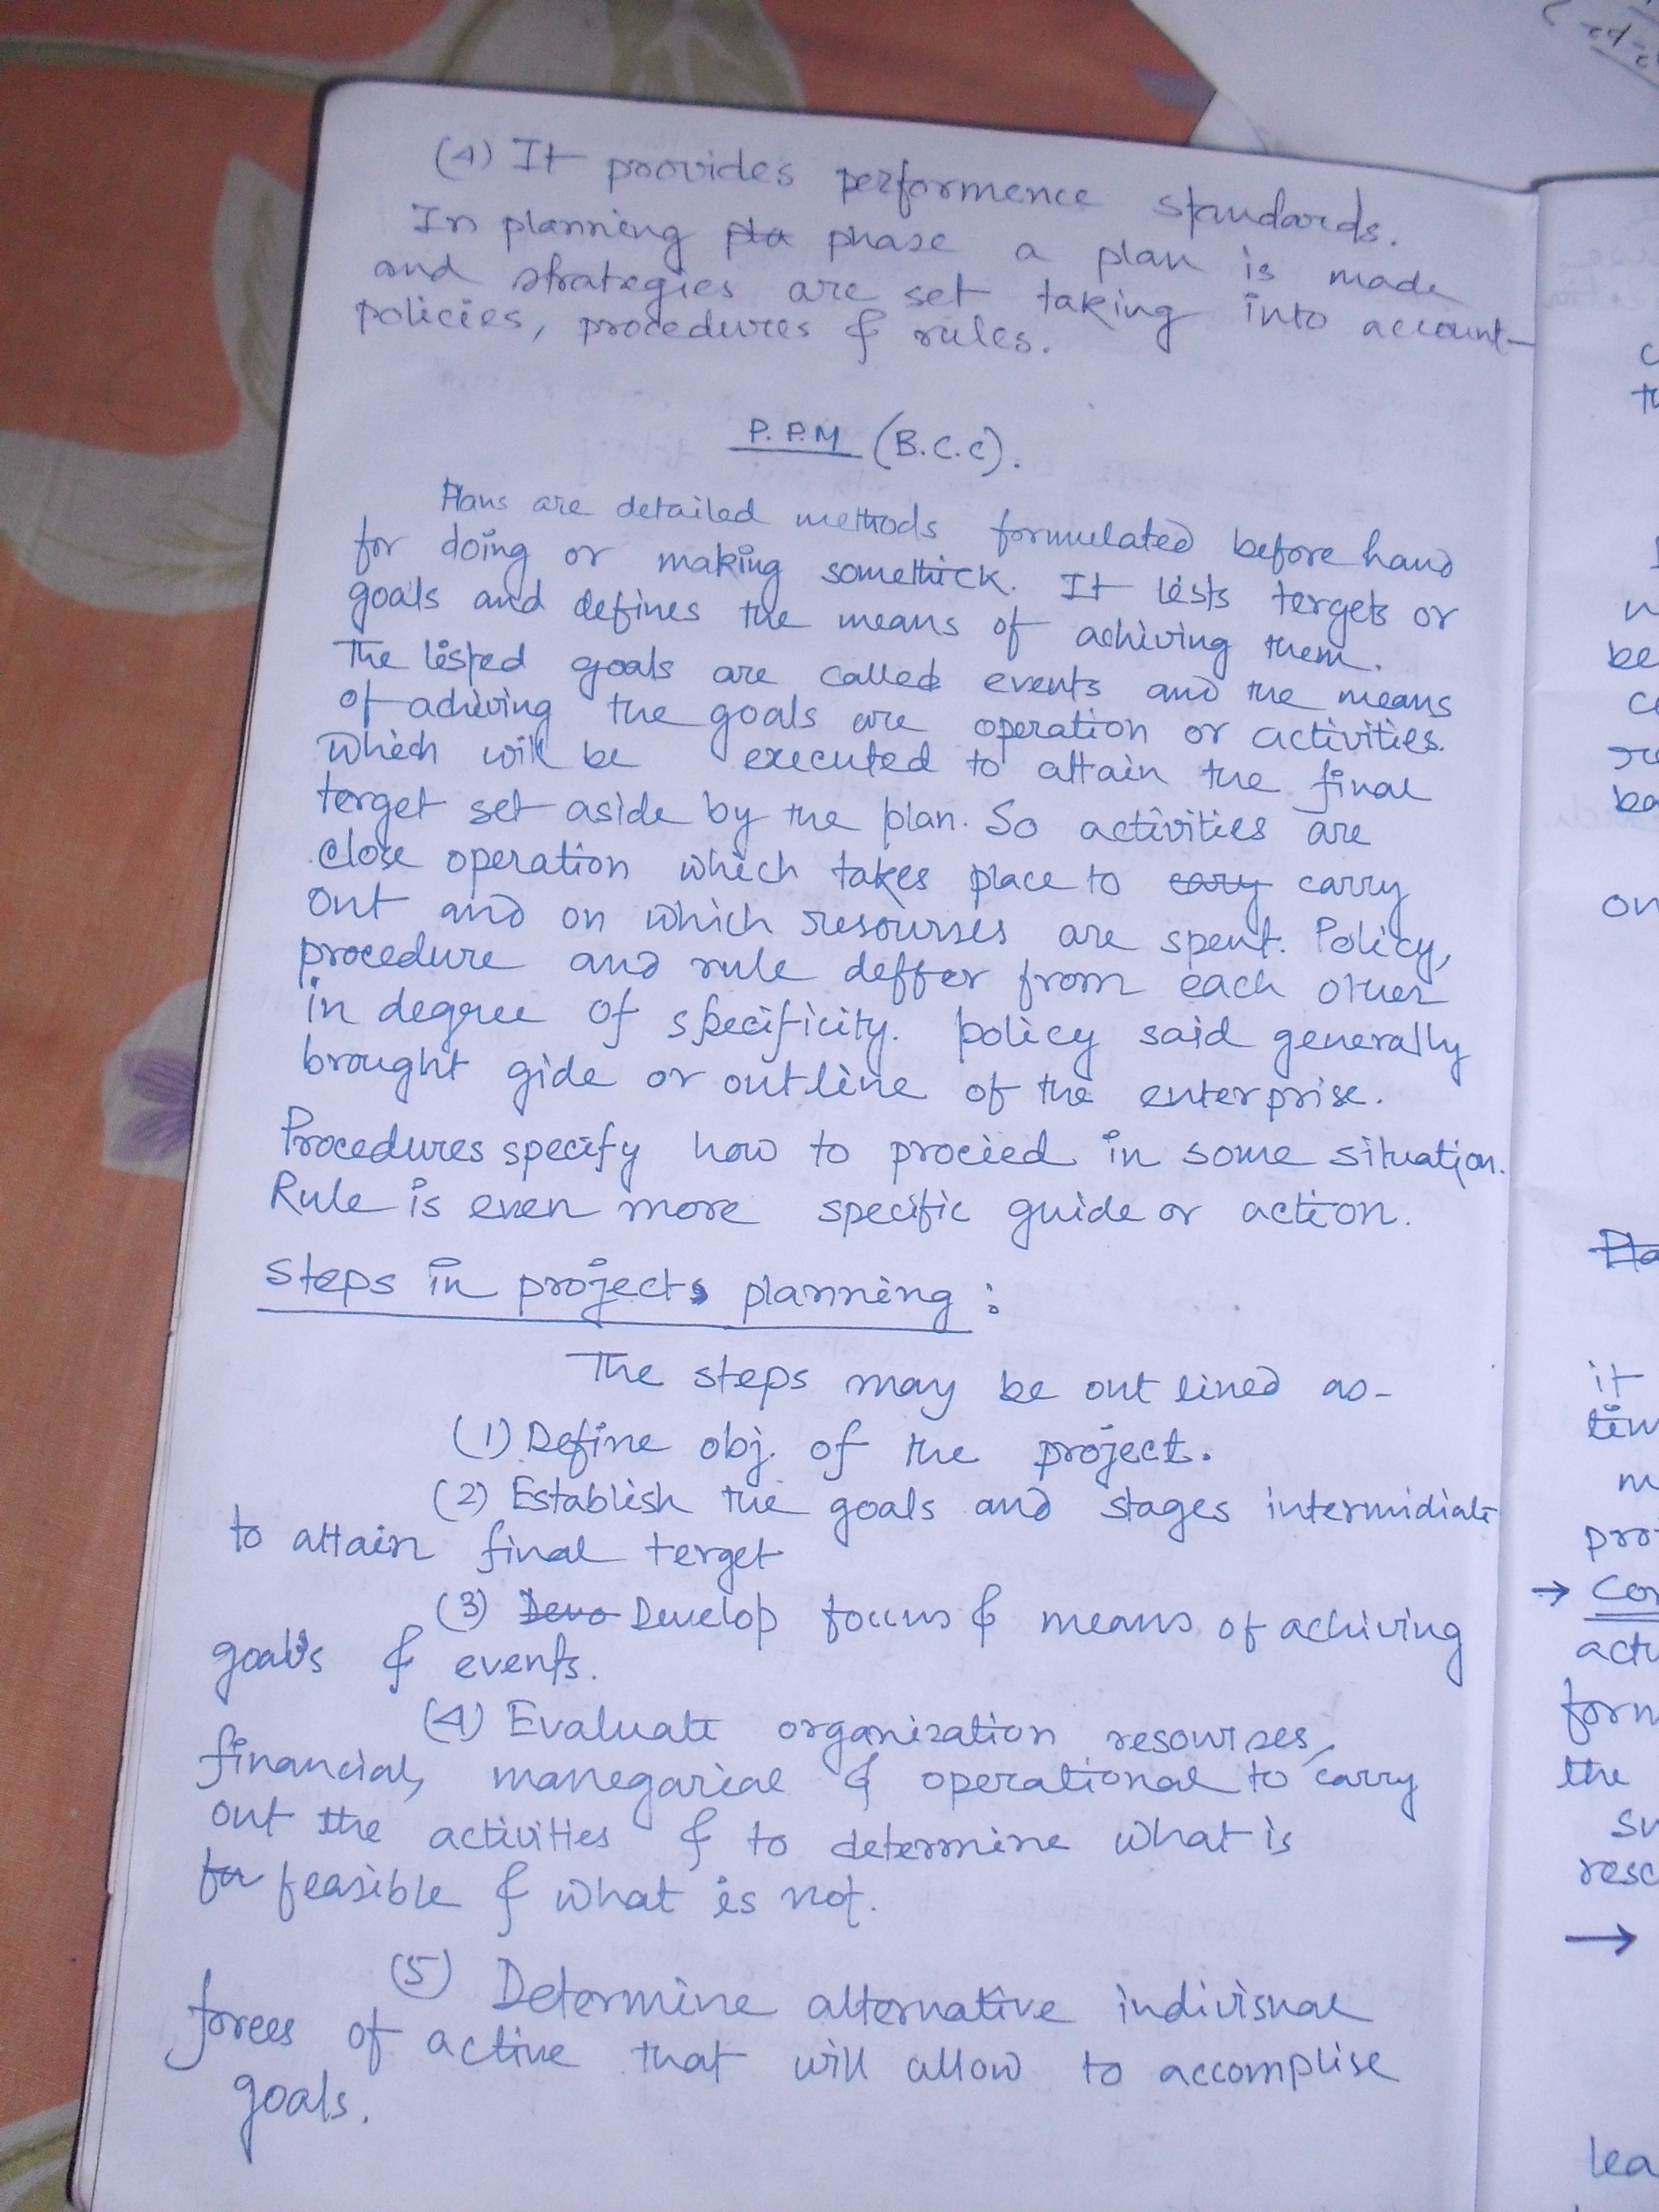 (4) It provides performence standards.
In planning pla phase a plan is made
and strategies are set taking into account
policies, procedures & rules.
P.P.M (B.C.C).
Plans are detailed methods formulated before hand
for doing or making somethick. It lists tergets or
goals and defines the means of achiving them.
The listed goals are called events and the means
of achiving the goals are operation or activities.
which will be executed to attain the final
terget set aside by the plan. So activities are
close operation which takes place to cary carry
out and on which resourses are spent. Policy,
procedure and rule deffer from each other
in degree of specificity. policy said generally
brought gide or outline of the enterprise.
Procedures specify how to procied in some situation.
Rule is even more specific guide or action.
Steps in projects planning :
The steps may be out lined as-
(1) Define obj. of the project.
(2) Establish the goals and stages intermidiate
to attain final terget
(3) Devo Develop focus & means of achiving
goals & events.
(4) Evaluate organization resourses,
financial, manegarial & operational to carry
out the activities & to determine what is
fa feasible & what is not.
(5) Determine alternative indivisual
forces of active that will allow to accomplise
goals.
c
tu
w
be
ce
re
ba
on
Pla
it
tim
m
pro
→ Con
actu
form
the
su
reso
→
lea